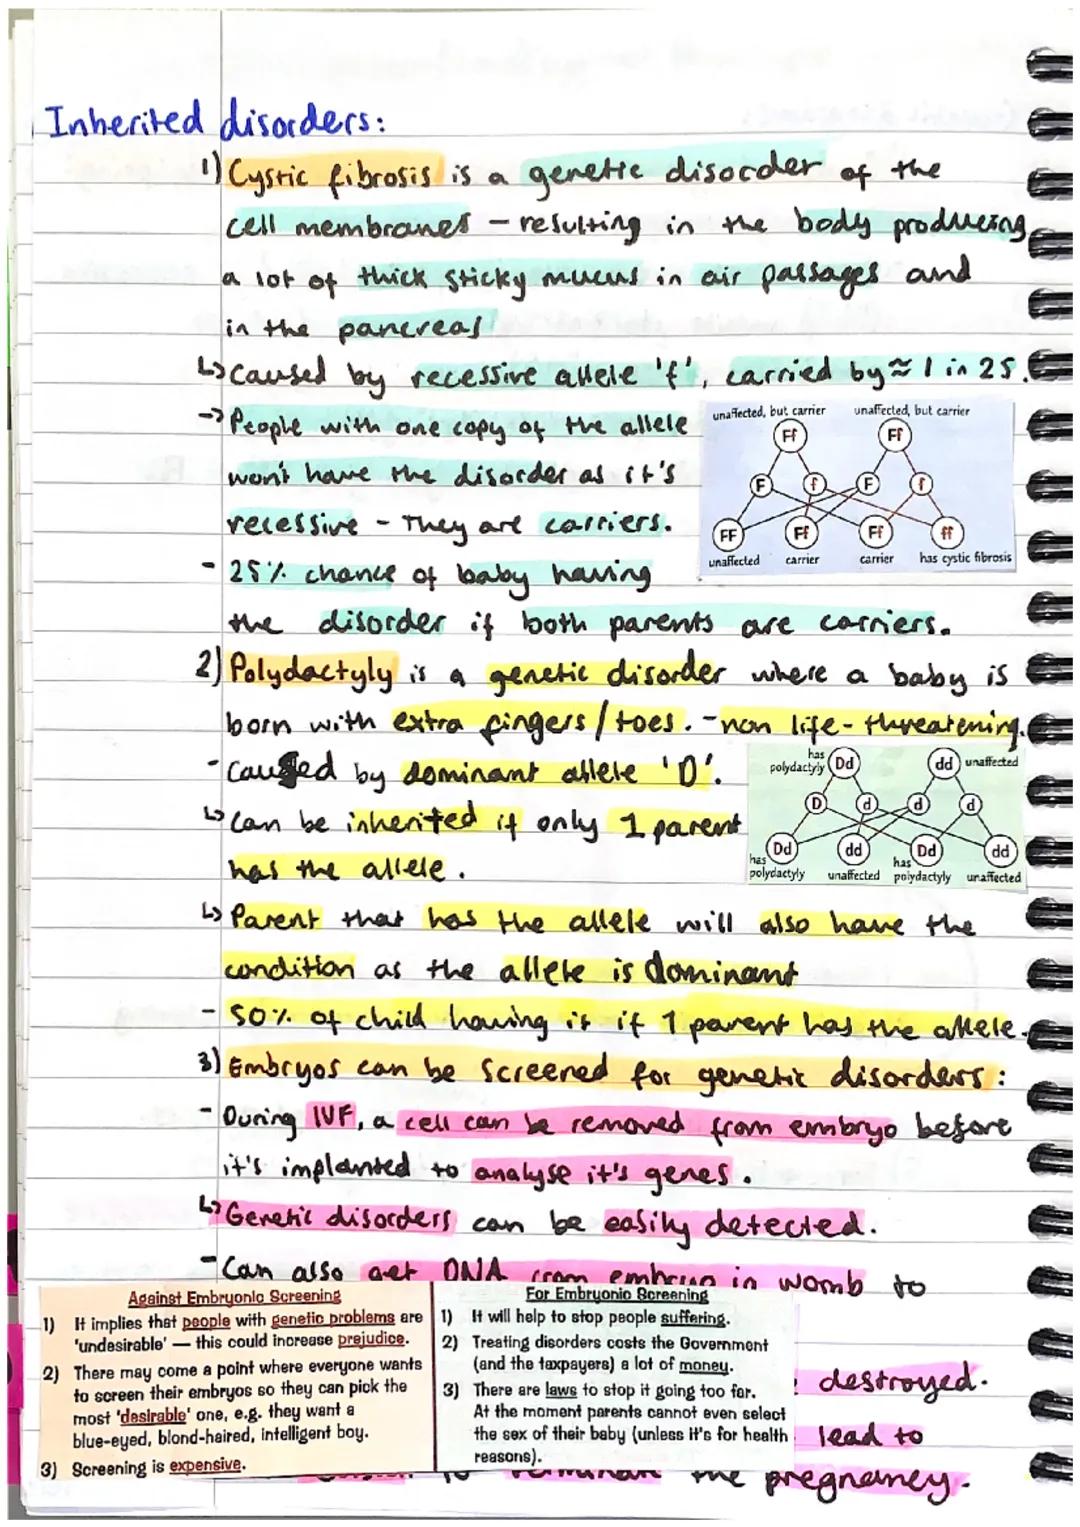 Inherited disorders:
1) Cystic fibrosis is a genetic disorder of the
cell membranes - resulting in the body producing
a lot of thick sticky mucus in air passages and
in the pancreas
↳ Caused by recessive allele 'f', carried by ≈ 1 in 25.
→ People with one copy of the allele
won't have the disorder as it's
recessive - They are carriers.
- 25% chance of baby having
the disorder if both parents are carriers.
unaffected, but carrier unaffected, but carrier
Ff Ff
F f F f
FF Ff Ff ff
unaffected carrier carrier has cystic fibrosis
2) Polydactyly is a genetic disorder where a baby is
born with extra fingers/toes. - non life-threatening.
- Caused by dominant allele 'D'.
↳ Can be inherited if only 1 parent
has the allele.
has polydactyly Dd dd unaffected
D d d d
Dd dd Dd dd
has polydactyly unaffected has polydactyly unaffected
↳ Parent that has the allele will also have the
condition as the allele is dominant
- 50% of child having it if 1 parent has the allele.
3) Embryos can be screened for genetic disorders:
- During IVF, a cell can be removed from embryo before
it's implanted to analyse it's genes.
↳ Genetic disorders can be easily detected.
- Can also get DNA from embryo in womb to
destroyed.
lead to
terminate the pregnancy.
Against Embryonic Screening
1) It implies that people with genetic problems are
'undesirable' — this could increase prejudice.
2) There may come a point where everyone wants
to screen their embryos so they can pick the
most 'desirable' one, e.g. they want a
blue-eyed, blond-haired, intelligent boy.
3) Screening is expensive.
For Embryonic Screening
1) It will help to stop people suffering.
2) Treating disorders costs the Government
(and the taxpayers) a lot of money.
3) There are laws to stop it going too far.
At the moment parents cannot even select
the sex of their baby (unless it's for health
reasons).